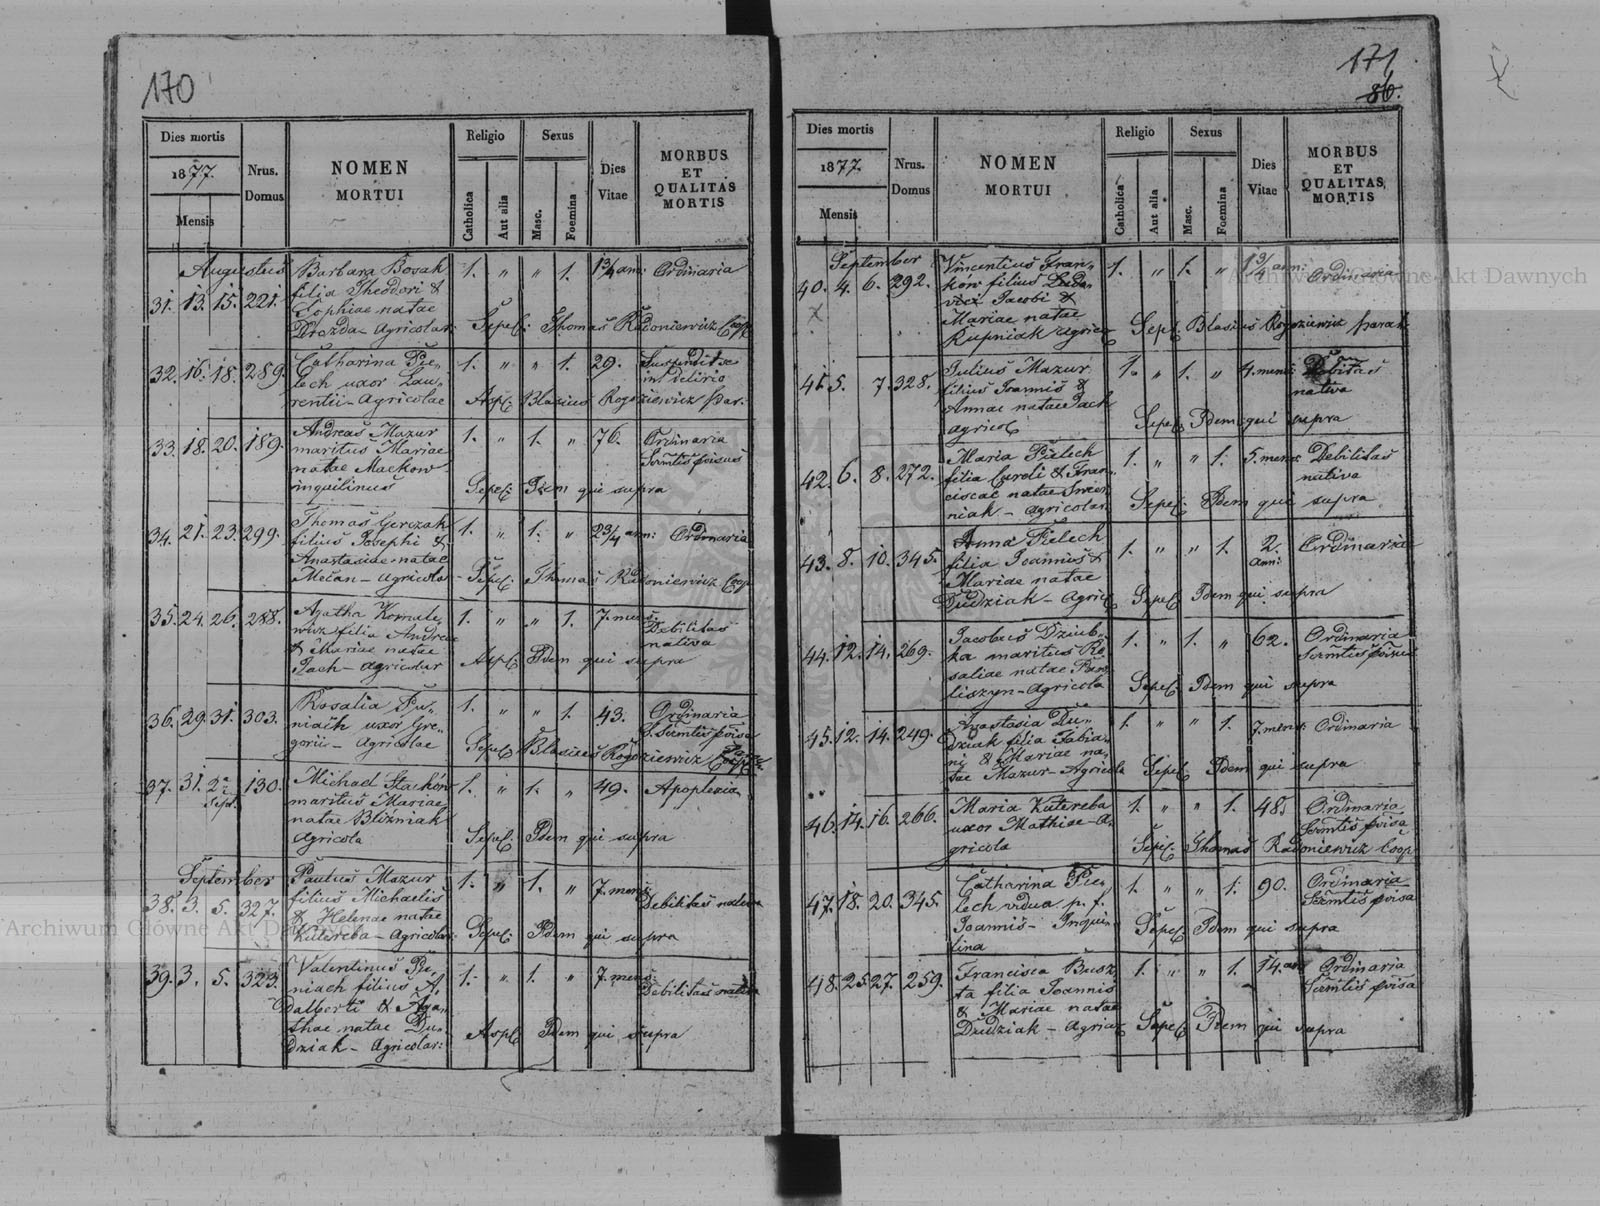 170
Dies mortis
1877.
Mensis
Nrus.
Domus
NOMEN
MORTUI
Religio
Catholica
Aut alia
Sexus
Masc.
Foemina
Dies
Vitae
MORBUS
ET
QUALITAS
MORTIS
Augustus
31. 13. 15. 221. Barbara Bosak 1. " " 1. 1 3/4 ann: Ordinaria
filia Theodori &
Sophiae natae
Drozda - Agricolar: Sepel: Thomas Radoniewicz Coop
32. 16. 18. 289. Catharina Pie-
lech uxor Lau-
rentii - Agricolae
1. " " 1. 29. Suspendit se
in delirio
Aspl: Blasius Rogoziewicz par:
33. 18. 20. 189. Andreas Mazur
maritus Mariae
natae Mackow
inquilinus
1. " 1. " 76. Ordinaria
Scmtis pvisus
Sepel: Idem qui supra
34. 21. 23. 299. Thomas Gerczak
filius Josephi &
Anastasiae natae
Mećan - Agricola
1. " 1. " 2 3/4 ann: Ordinaria
Sepel: Thomas Radoniewicz Coop
35. 24. 26. 288. Agatha Kornate-
wicz filia Andreae
& Mariae natae
Pach - Agricolar
1. " " 1. 7. mens:
Debilitas
nativa
Aspl: Idem qui supra
36. 29. 31. 303. Rosalia Pu-
niach uxor Gre-
gorii - Agricolae
1. " " 1. 43. Ordinaria
S. Scmtis pvisa
Sepel: Blasius Rogoziewicz
37. 31. 2 Sept. 130. Michael Stachów
maritus Mariae
natae Blizniak
Agricola
1. " 1. " 49. Apoplexia
Sepel: Idem qui supra
September
38. 3. 5. 327. Paulus Mazur
filius Michaelis
& Helenae natae
Kutereba - Agricolar:
1. " 1. " 7. mens:
Debilitas nativa
Sepel: Idem qui supra
39. 3. 5. 323. Valentinus Pu-
niach filius A-
dalberti & Aga-
thae natae Du-
dziak - Agricolar:
1. " 1. " 7. mens:
Debilitas nativa
Aspl: Idem qui supra
171
86.
Dies mortis
1877.
Mensis
Nrus.
Domus
NOMEN
MORTUI
Religio
Catholica
Aut alia
Sexus
Masc.
Foemina
Dies
Vitae
MORBUS
ET
QUALITAS
MORTIS
September
40. 4. 6. 292. Vincentius Fran-
ków filius
Jacobi &
Mariae natae
Kupniak agricol
1. " 1. " 1 3/4 ann: Ordinaria
Sepel: Blasius Rogoziewicz paroch
41. 5. 7. 328. Julius Mazur
filius Joannis &
Annae natae Pach
agricol
1. " 1. " 4. mens: Debilitas
nativa
Sepel: Idem qui supra
42. 6. 8. 272. Maria Pielech
filia Caroli & Fran-
ciscae natae
niak - Agricolar.
1. " " 1. 5. mens: Debilitas
nativa
Sepel: Idem qui supra
43. 8. 10. 345. Anna Pielech
filia Joannis &
Mariae natae
Dudziak - Agricol
1. " " 1. 2.
ann:
Ordinaria
Sepel: Idem qui supra
44. 12. 14. 269. Jacobus Dziub-
ka maritus Ro-
saliae natae
liszyn - Agricola
1. " 1. " 62. Ordinaria
Scmtis pvisus
Sepel: Idem qui supra
45. 12. 14. 249. Anastasia Du-
dziak filia Fabia-
ni & Mariae na-
tae Mazur - Agricola
1. " " 1. 7. mens: Ordinaria
Sepel: Idem qui supra
46. 14. 16. 266. Maria Kutereba
uxor Mathiae - A-
gricola
1. " " 1. 48. Ordinaria
Scmtis pvisa
Sepel: Thomas Radoniewicz Coop
47. 18. 20. 345. Catharina Pie-
lech vidua p. f.
Joannis - Inqui-
lina
1. " " 1. 90. Ordinaria
Scmtis pvisa
Sepel: Idem qui supra
48. 25. 27. 259. Francisca Busz-
ta filia Joannis
& Mariae natae
Dudziak - Agricol
1. " " 1. 14. an Ordinaria
Scmtis pvisa
Sepel: Idem qui supra
Archiwum Główne Akt Dawnych
Archiwum Główne Akt Dawnych